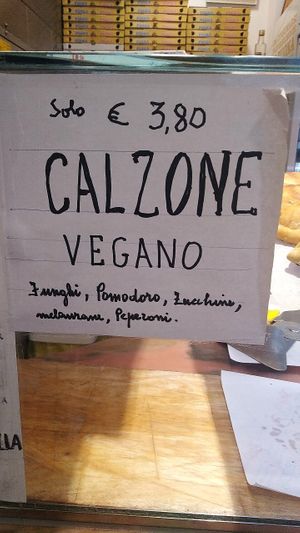 Solo € 3,80
CALZONE
VEGANO
Funghi, Pomodoro, Zucchine,
melanzane, Peperoni.
LLA